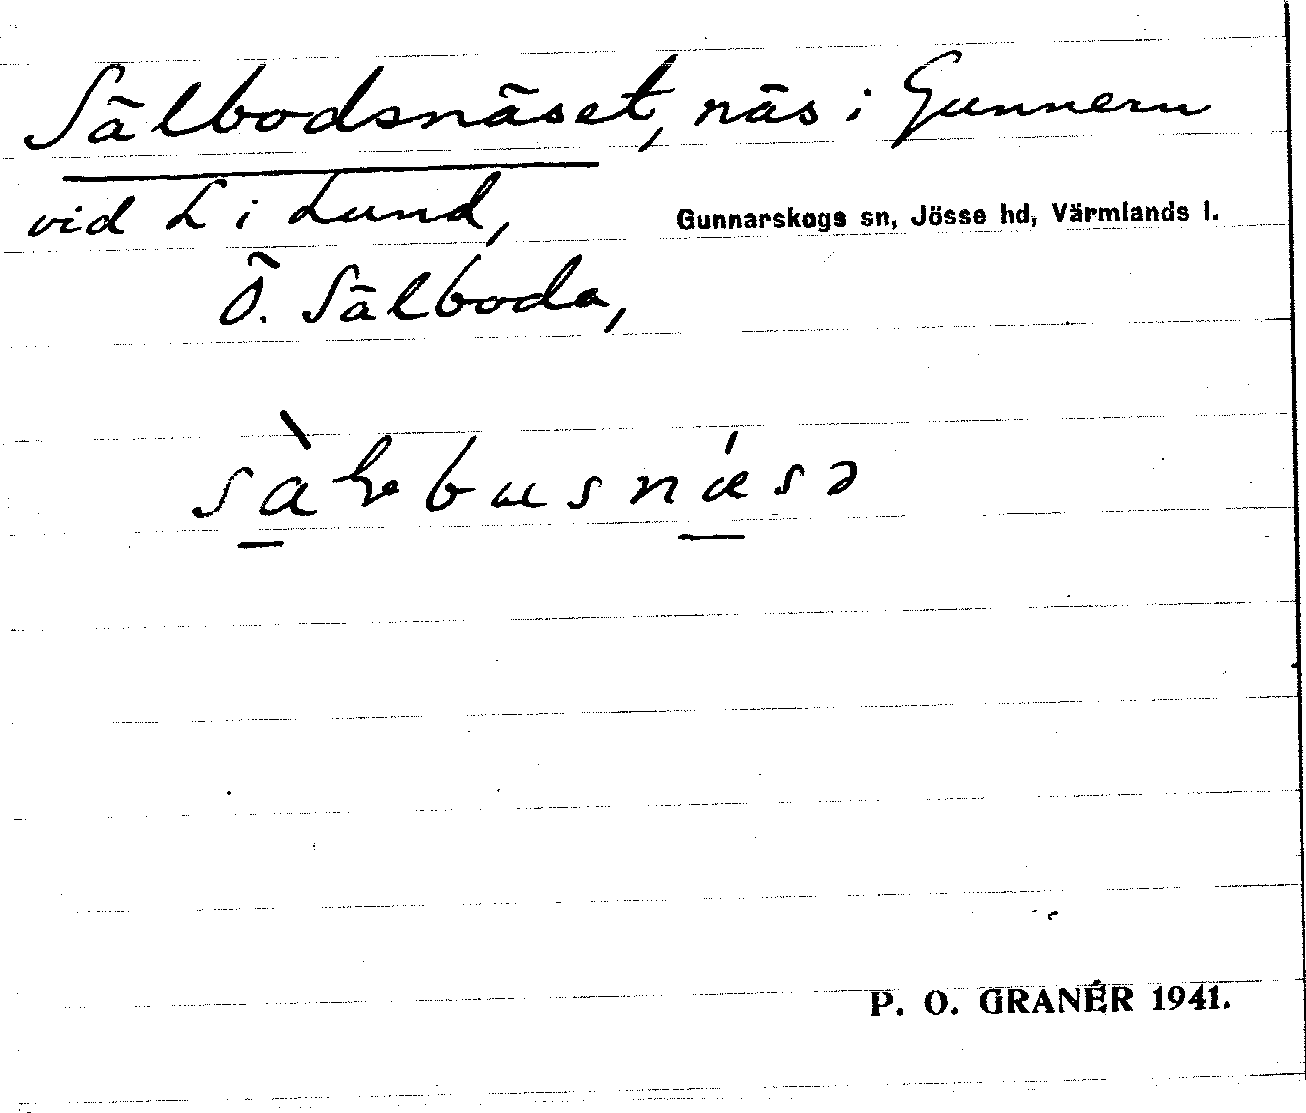 Sälbodsnäset, näs i Gunnern
vid L i Lund,
Gunnarskogs sn, Jösse hd, Värmlands l.
Ö. Sälboda,
P. O. GRANÉR 1941.